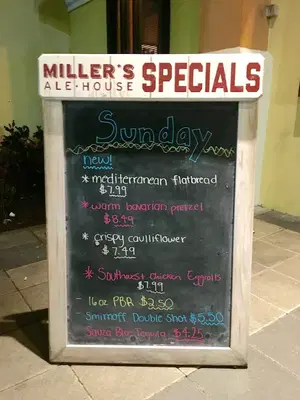 MILLER'S
ALE·HOUSE
SPECIALS
Sunday
new!
* mediterranean flatbread
$7.99
* warm bavarian pretzel
$8.49
* crispy caulliflower
$7.49
* Southwest Chicken Eggrolls
$7.99
- 16oz PBR $2.50
- Smirnoff Double Shot $5.50
Sauza Blue Tequila $4.25